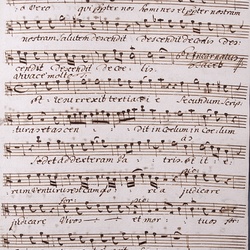 Vero qui propter nos homines et propter nostram
nostram Salutem descendit Descendit de Coelis Des
cendit Descendit de coelis
et resurrexit tertia die Secundum Scrip
turas et ascen dit in Coelum in Coelum
Sedet ad dexteram Pa tris et it e
rum venturus est cum glo ria judicare
for: pia:
judicare Vivos et mor tuos